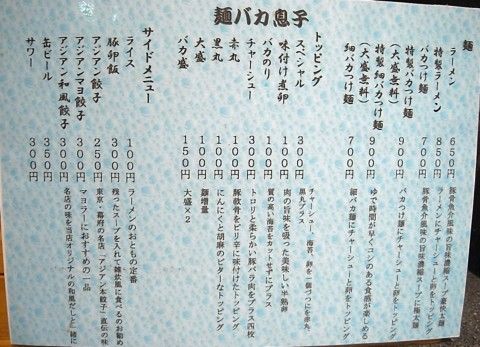 麺バカ息子
麺
ラーメン 650円 豚骨魚介風味の旨味濃縮スープ豪快太麺
特製ラーメン 850円 ラーメンにチャーシューと卵をトッピング
バカつけ麺 700円 豚骨魚介風味の旨味濃縮スープに極太麺
特製バカつけ麺 900円 バカつけ麺にチャーシューと卵をトッピング
(大盛無料)
特製細バカつけ麺 900円 ゆで時間が早くコシのある食感が楽しめる
(大盛無料)
細バカつけ麺 700円 細バカ麺にチャーシューと卵をトッピング
トッピング
スペシャル 300円 チャーシュー、海苔、卵を一個づつに赤丸、黒丸プラス
味付け煮卵 100円 肉の旨味を吸った美味しい半熟卵
バカのり 100円 質の高い海苔をカットせずにプラス
チャーシュー 300円 トロリと柔らかい豚バラ肉をプラス四枚
赤丸 100円 豚軟骨をピリ辛に味付けたトッピング
黒丸 100円 にんにくと胡麻のビターなトッピング
大盛 100円 麺増量
バカ盛 150円 大盛×2
サイドメニュー
ライス 100円 ラーメンのおともの定番
豚卵飯 300円 残ったスープを入れて雑炊風に食べるのお勧め
アジアン餃子 250円 東京・幕府の名店「アジアン本餃子」直伝の味
アジアンマヨ餃子 300円 マヨラーにおすすめの一品
アジアン和風餃子 300円 名店の味を当店オリジナルの和風だしと一緒に
缶ビール 300円
サワー 300円